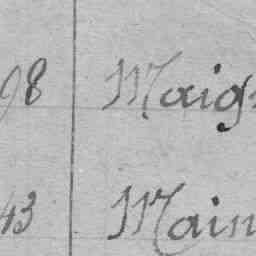 98 Maig
43 Main